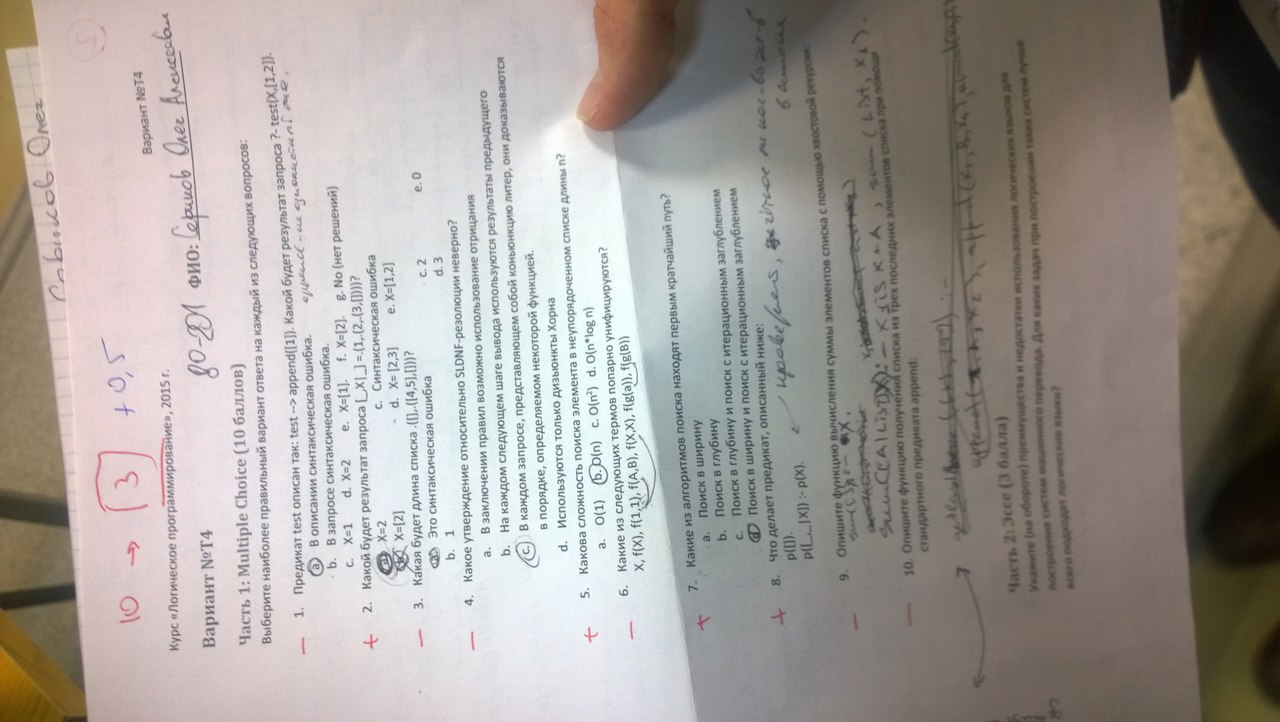 Олег
10 → 3 + 0,5
Вариант №Т4
Курс «Логическое программирование», 2015 г.
Вариант №Т4
80-201 ФИО: Олег Алексеевич
Часть 1: Multiple Choice (10 баллов)
Выберите наиболее правильный вариант ответа на каждый из следующих вопросов:
– 1. Предикат test описан так: test --> append([1]). Какой будет результат запроса ?- test(X,[1,2]).
a. В описании синтаксическая ошибка. append - не
b. В запросе синтаксическая ошибка.
c. X=1 d. X=2 e. X=[1]. f. X=[2]. g. No (нет решений)
+ 2. Какой будет результат запроса [_,X|_] =.(1,.(2,.(3,[])))?
a. X=2 c. Синтаксическая ошибка
b. X=[2] d. X= [2,3] e. X=[1,2]
– 3. Какая будет длина списка .([],.([4,5],[]))?
a. Это синтаксическая ошибка c. 2 e. 0
b. 1 d. 3
– 4. Какое утверждение относительно SLDNF-резолюции неверно?
a. В заключении правил возможно использование отрицания
b. На каждом следующем шаге вывода используются результаты предыдущего
c. В каждом запросе, представляющем собой конъюнкцию литер, они доказываются
в порядке, определяемом некоторой функцией.
d. Используются только дизъюнкты Хорна
+ 5. Какова сложность поиска элемента в неупорядоченном списке длины n?
a. O(1) b. O(n) c. O(n²) d. O(n*log n)
– 6. Какие из следующих термов попарно унифицируются?
X, f(X), f(1,1), f(A,B), f(X,X), f(g(a)), f(g(B))
+ 7. Какие из алгоритмов поиска находят первым кратчайший путь?
a. Поиск в ширину
b. Поиск в глубину
c. Поиск в глубину и поиск с итерационным заглублением
d. Поиск в ширину и поиск с итерационным заглублением
+ 8. Что делает предикат, описанный ниже:
p([]). проверяет, чётное ли кол-во эл-в
p([_,_|X]) :- p(X). в списке
– 9. Опишите функцию вычисления суммы элементов списка с помощью хвостовой рекурсии:
X is X + A, sum (List, X₁).
– 10. Опишите функцию получения списка из трех последних элементов списка при помощи
стандартного предиката append:
Часть 2: Эссе (3 балла)
Укажите (на обороте) преимущества и недостатки использования логических языков для
построения систем машинного перевода. Для каких задач при построении таких систем лучше
всего подходят логические языки?